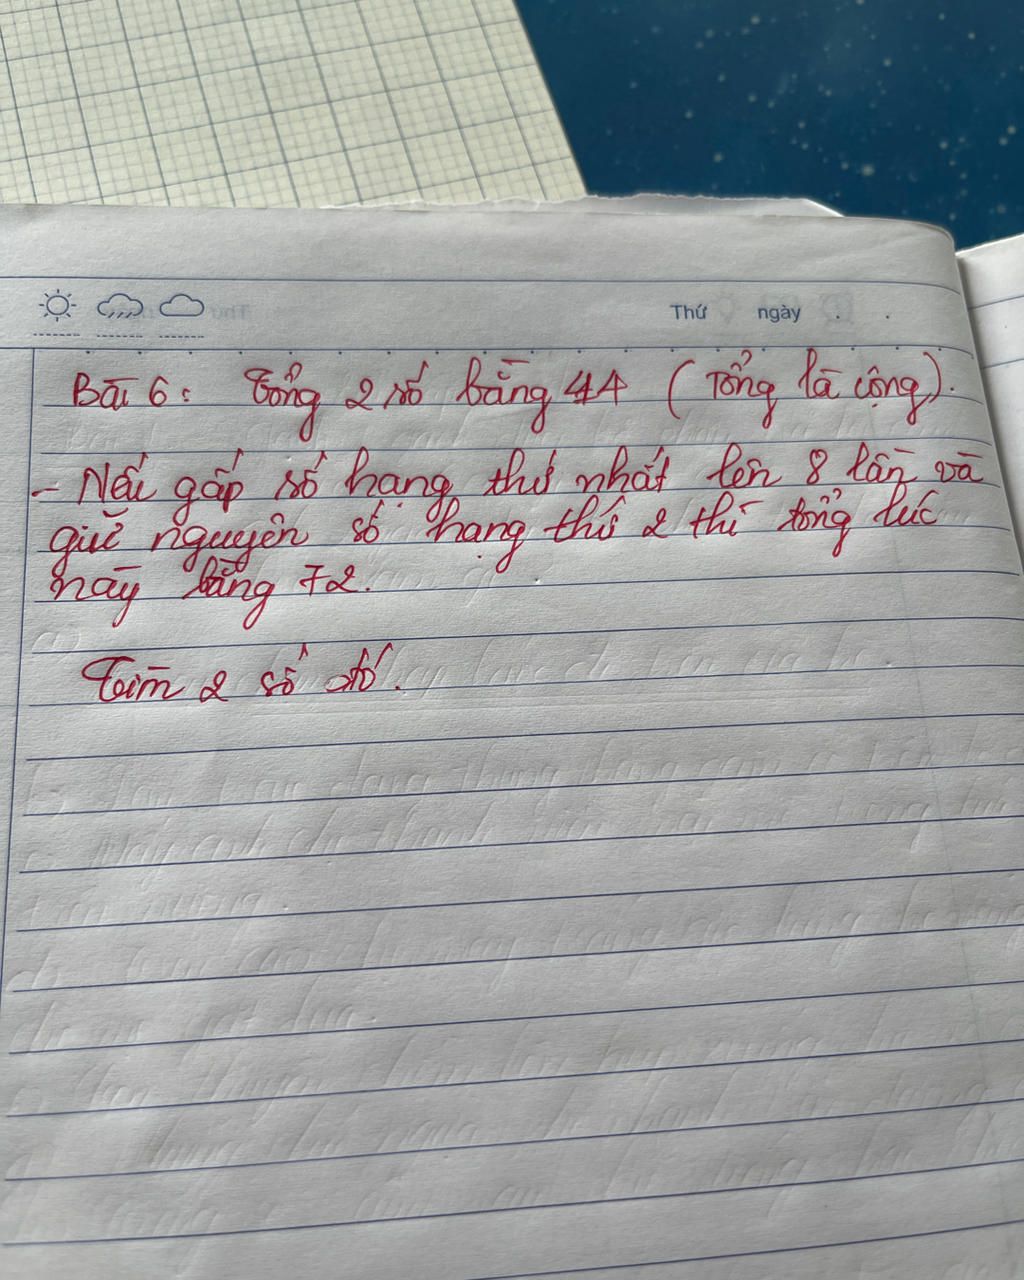 Thứ ngày
Bài 6: Tổng 2 số bằng 44 (Tổng là cộng).
- Nếu gấp số hạng thứ nhất lên 8 lần và
giữ nguyên số hạng thứ 2 thì tổng lúc
này bằng 72.
Tìm 2 số đó.